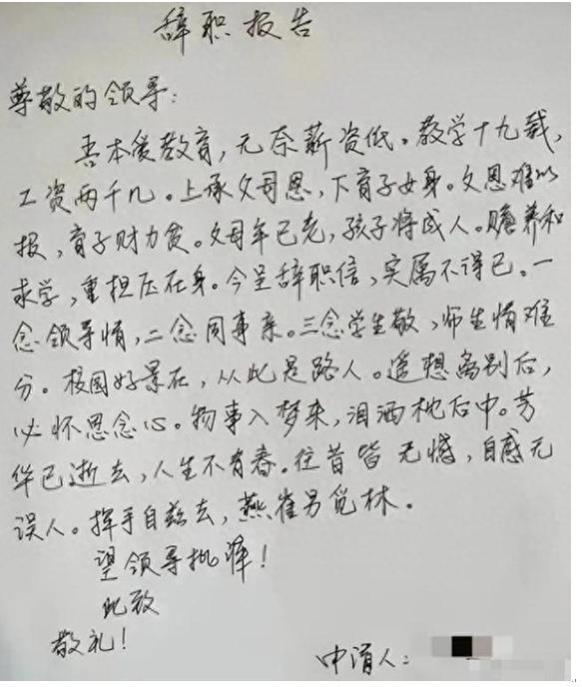 辞职报告
尊敬的领导:
吾本爱教育,无奈薪资低。教学十九载,
工资两千几。上承父母恩,下育子女身。父恩难以
报,育子财力贫。父母年已老,孩子将成人。赡养和
求学,重担压在身。今呈辞职信,实属不得已。一
念领导情,二念同事亲。三念学生敬,师生情难
分。校园好景在,从此是路人。遥想离别后,
必怀思念心。物事入梦来,泪洒枕后巾。芳
华已逝去,人生不有春。往昔皆无憾,自感无
误人。挥手自兹去,燕雀另觅林。
望领导批准!
此致
敬礼!
申请人: